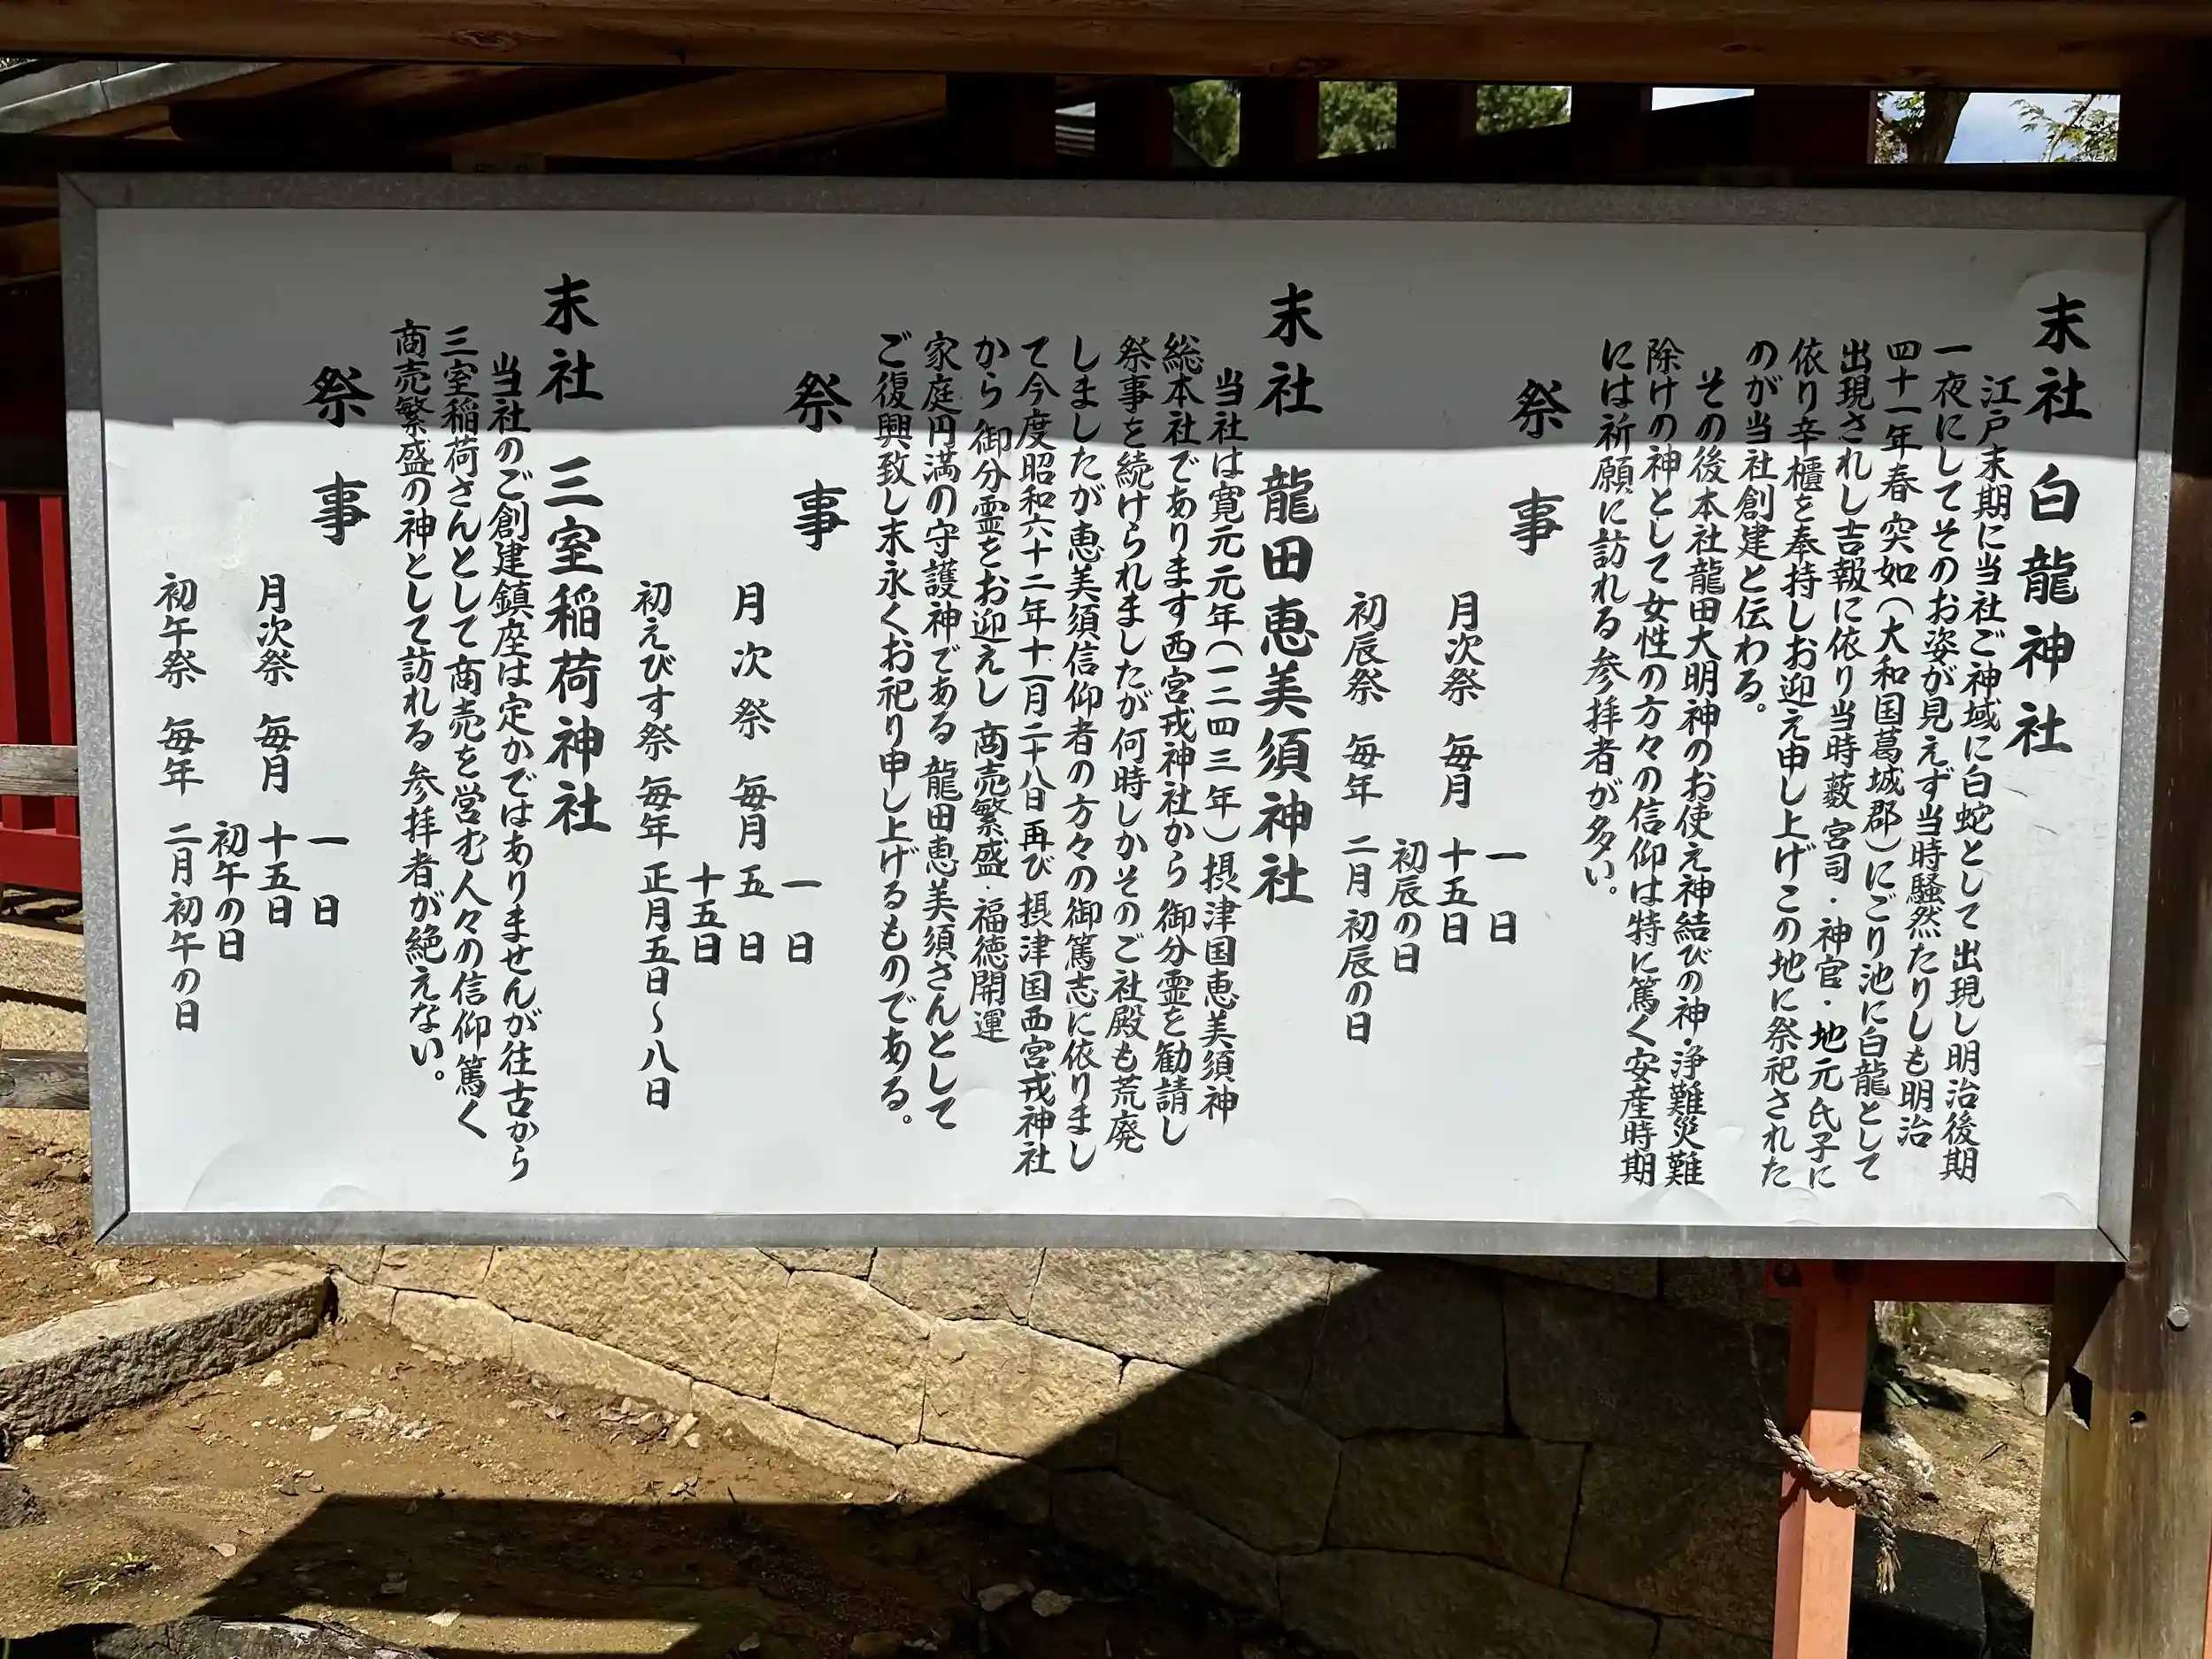 末社 白龍神社
江戸末期に当社ご神域に白蛇として出現し明治後期
一夜にしてそのお姿が見えず当時騒然たりしも明治
四十一年春 突如(大和国葛城郡)にごり池に白龍として
出現されし吉報に依り当時藪宮司・神官・地元氏子に
依り辛櫃を奉持しお迎え申し上げこの地に祭祀された
のが当社創建と伝わる。
その後本社龍田大明神のお使え神結びの神・浄難災難
除けの神として女性の方々の信仰は特に篤く安産時期
には祈願に訪れる参拝者が多い。
祭事
一日
月次祭 毎月 十五日
初辰の日
初辰祭 毎年 二月初辰の日
末社 龍田恵美須神社
当社は寛元元年(一二四三年)摂津国恵美須神
総本社であります西宮戎神社から御分霊を勧請し
祭事を続けられましたが何時しかそのご社殿も荒廃
しましたが恵美須信仰者の方々の御篤志に依りまし
て今度昭和六十二年十一月二十八日再び摂津国西宮戎神社
から御分霊をお迎えし 商売繁盛・福徳開運
家庭円満の守護神である 龍田恵美須さんとして
ご復興致し末永くお祀り申し上げるものである。
祭事
一日
月次祭 毎月 五日
十五日
初えびす祭 毎年 正月五日~八日
末社 三室稲荷神社
当社のご創建鎮座は定かではありませんが往古から
三室稲荷さんとして商売を営む人々の信仰篤く
商売繁盛の神として訪れる参拝者が絶えない。
祭事
一日
月次祭 毎月 十五日
初午の日
初午祭 毎年 二月初午の日